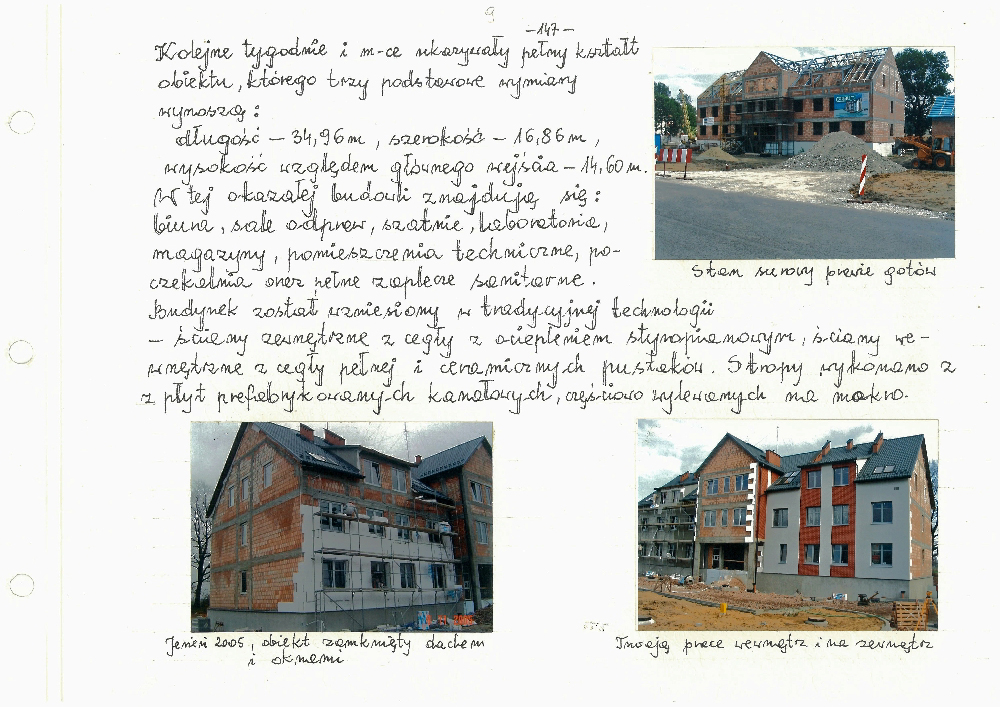 9
-147-
Kolejne tygodnie i m-ce ukazywały pełny kształt
obiektu, którego trzy podstawowe wymiary
wynoszą:
długość - 34,96 m, szerokość - 16,86 m,
wysokość względem głównego wejścia - 14,60 m.
W tej okazałej budowli znajdują się:
biura, sale odpraw, szatnie, laboratoria,
magazyny, pomieszczenia techniczne, po-
czekalnia oraz pełne zaplecze sanitarne.
Budynek został wzniesiony w tradycyjnej technologii
- ściany zewnętrzne z cegły z ociepleniem styropianowym, ściany we-
wnętrzne z cegły pełnej i ceramicznych pustaków. Stropy wykonano z
z płyt prefabrykowanych kanałowych, częściowo wylewanych na mokro.
Stan surowy prawie gotów
Jesień 2005, obiekt zamknięty dachem
i oknami
Trwają prace wewnątrz i na zewnątrz